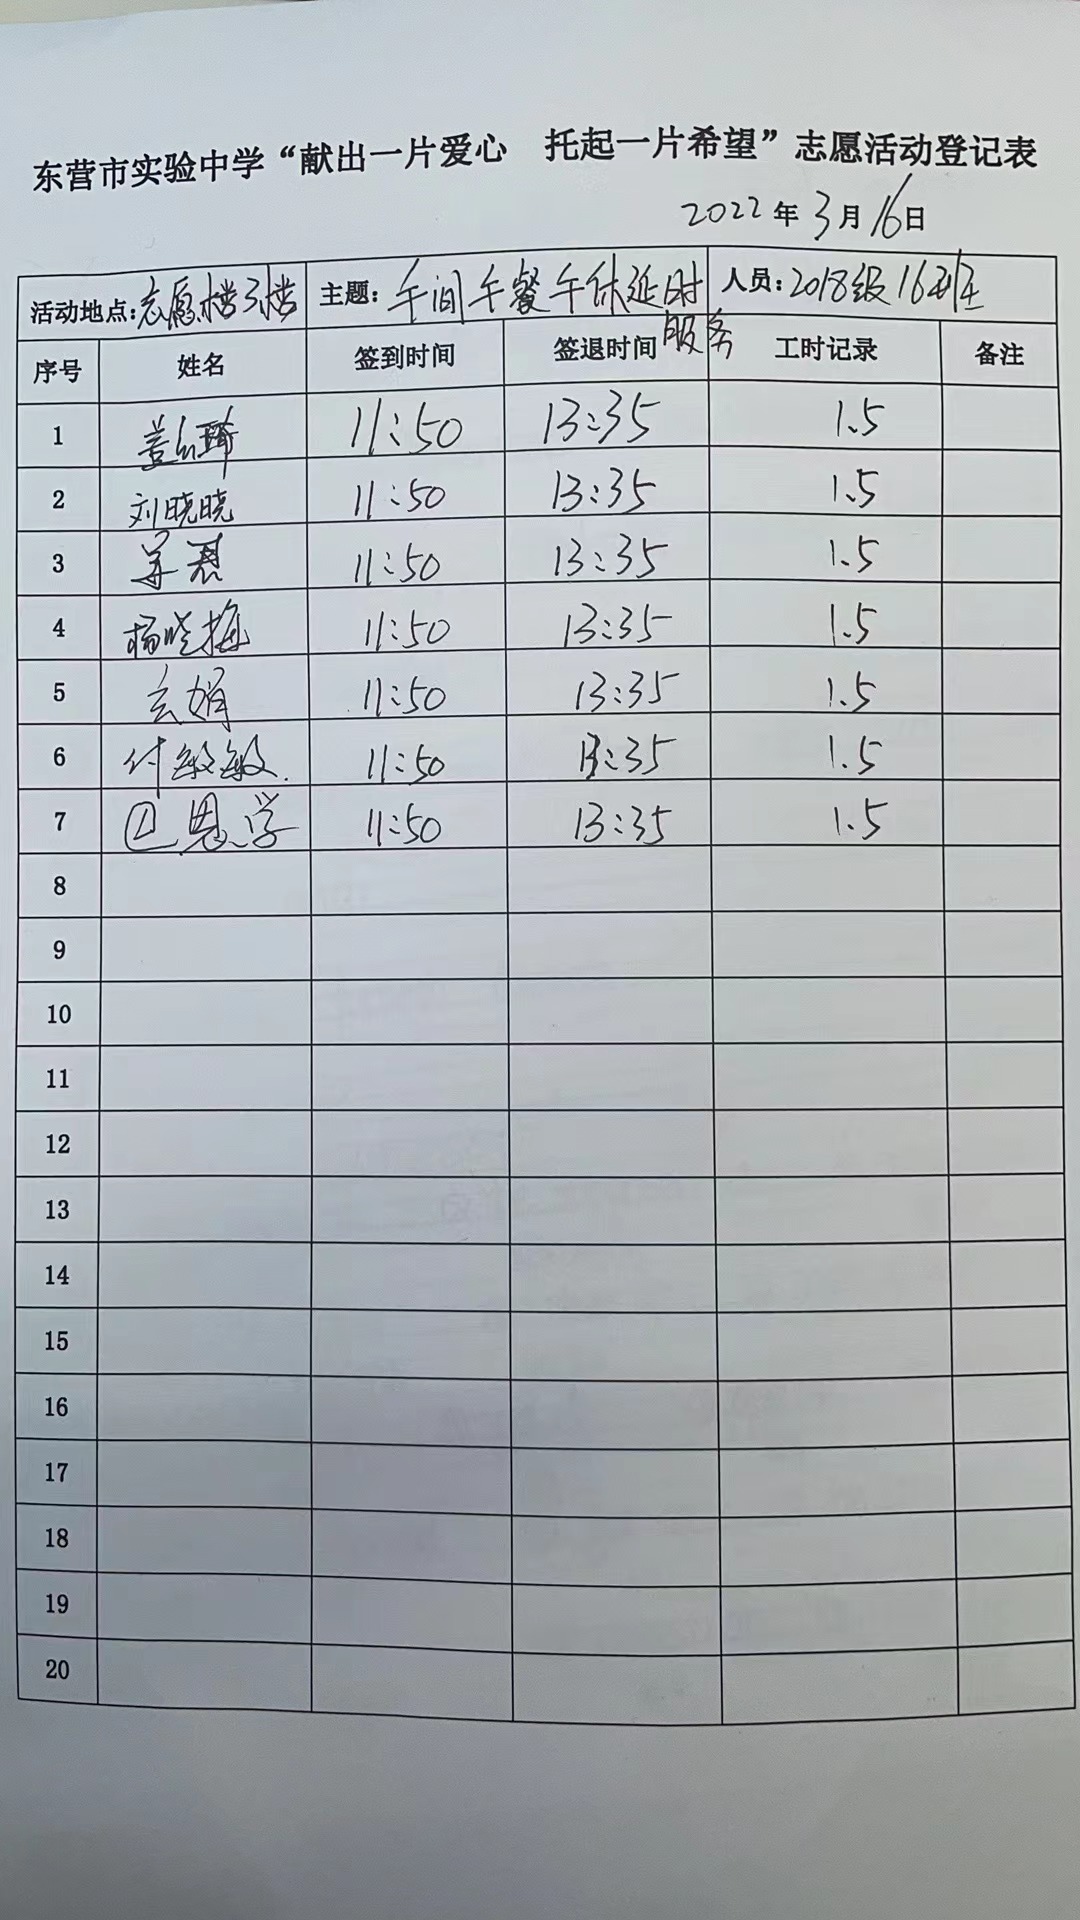 东营市实验中学“献出一片爱心 托起一片希望”志愿活动登记表
2022年3月16日
活动地点:志愿楼3楼 主题:午间午餐午休延时服务 人员:2018级16班
序号 姓名 签到时间 签退时间 工时记录 备注
1 11:50 13:35 1.5
2 刘晓晓 11:50 13:35 1.5
3 11:50 13:35 1.5
4 杨晓梅 11:50 13:35 1.5
5 玄娟 11:50 13:35 1.5
6 付敏敏 11:50 13:35 1.5
7 巴恩学 11:50 13:35 1.5
8
9
10
11
12
13
14
15
16
17
18
19
20